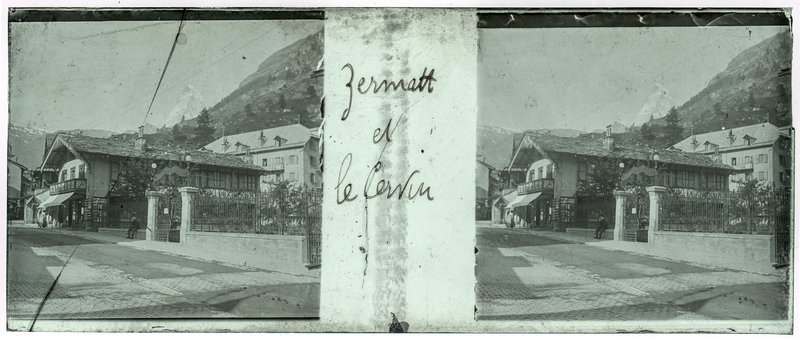 Zermatt
et
le Cervin